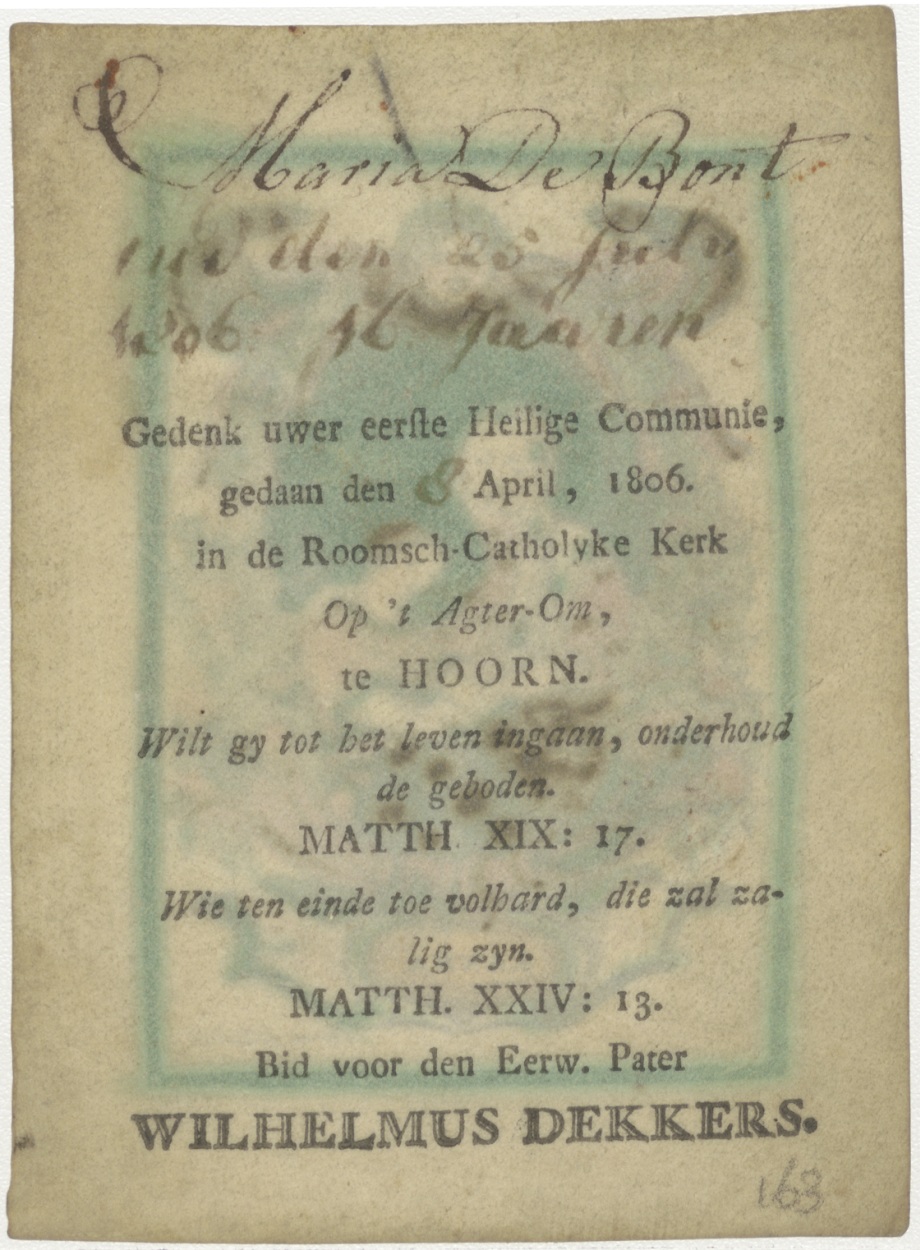 Maria De Bont
oud den 25 July
1806 16 Jaaren
Gedenk uwer eerſte Heilige Communie,
gedaan den 8 April, 1806.
in de Roomsch-Catholyke Kerk
Op 't Agter-Om,
te HOORN.
Wilt gy tot het leven ingaan, onderhoud
de geboden.
MATTH. XIX: 17.
Wie ten einde toe volhard, die zal za-
lig zyn.
MATTH. XXIV: 13.
Bid voor den Eerw. Pater
WILHELMUS DEKKERS.
163